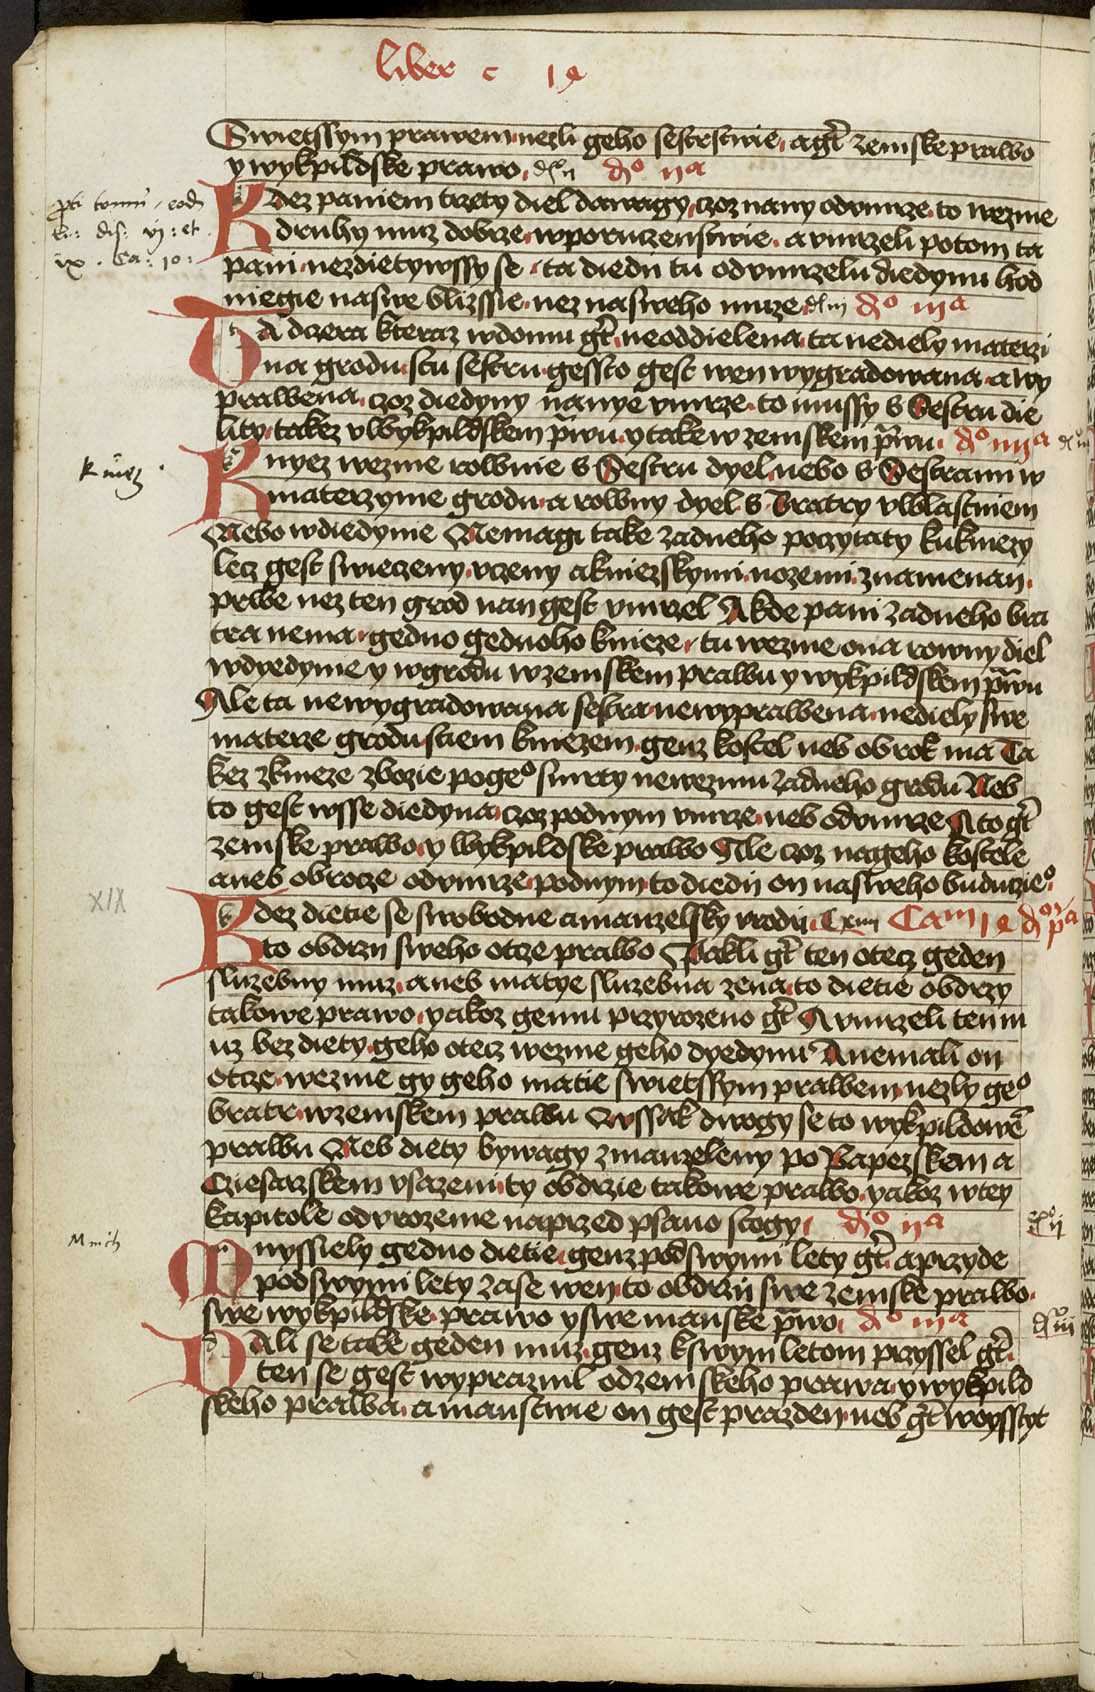 liber c 19
Swietssym prawem nezli geho sestrstwie, a gt zemske prawo
y wykpildske prawo dº iiª
Kdez paniem trzety diel dawagy, czoz nany odumrze to wezme
druhy muz dobrze wporuczenstwie. a umrzeli potom ta
pani nezdietywssy se, ta diedii tu odumrzelu diedynu hod
niegie naswe blizssie nez nasweho muze dº iiiª
Ta dczera kteraz wdomu gt neoddielena, ta nediely materzi
na grodu stu sestru gessto gest wen wygradowana, a wy
prawena. czoz diedyny nanye umrze to mussy s Sestru die
lity, takez wwykpildskem prwu y take wzemskem prwu dº iiiiª
Knyez wezme rowine s Sestru dyel nebo s Sestrami w
materzyme grodu a rowny dyel s Bratry wwlastniem
Nebo wdiedyme Nemagi take zadneho poczytaty kukniezy
lecz gest swieczeny uczeny aknieskymi nozemi znamenan.
prwe nez ten grod nan gest umrzel Akde pani zadneho bra
tra nema, gedno gednoho knieze, tu wezme ona rowny diel
wdyedyme y wgrodu wzemskem prawu y wykpildskem prwu
Ale ta newygradowana sestra newyprawena nediely swe
materze grodu stiem kniezem genz kostel neb obrok ma Ta
kez zknieze zbozie po geº smrty newezmu zadneho grodu Neb
to gest wsse diedyna, czoz podnym umrze neb odumrze A to gt
zemske prawo y wykpildske prawo Ale czoz nageho kostele
aneb obrocze odumrze podnym to diedij on nasweho buduczieº
Kdez dietie se swobodne a manzelsky urodij Cam 19 dº pª
to obdrzij sweho otcze prawo Pakli gt ten otecz geden
sluzebny muz aneb matye sluzebna zena to dietie obdrzy
takowe prawo yakoz gemu przyrozeno gt A umrzeli ten m
uz bez diety geho otecz wezme geho dyedynu A nemali on
otcze wezme gy geho matie swietssym prawem nezly geº
bratr wzemskem prawu Wssak dwogy se to wykpildowe
prawu Neb diety bywagy zmanzeleny po Papezskem a
Cziesarzskem usazeni ty obdrzie takowe prawo yakoz wtey
kapitole odurozenie naprzed psano stogy dº iiª
Mnyssiely gedno dietie genz podswymi lety gt aprzyde
podswymi lety zase wen to obdrzij swe zemske prawo
swe wykpildske prawo y swe manske prwo dº iiiª
Dali se take geden muz genz kswym letom przyssel gt
ten se gest wypraznil odzemskeho prawa y wykpild
skeho prawa amanstwie on gest prazden neb gt woyssstyt
XIX
Mnich